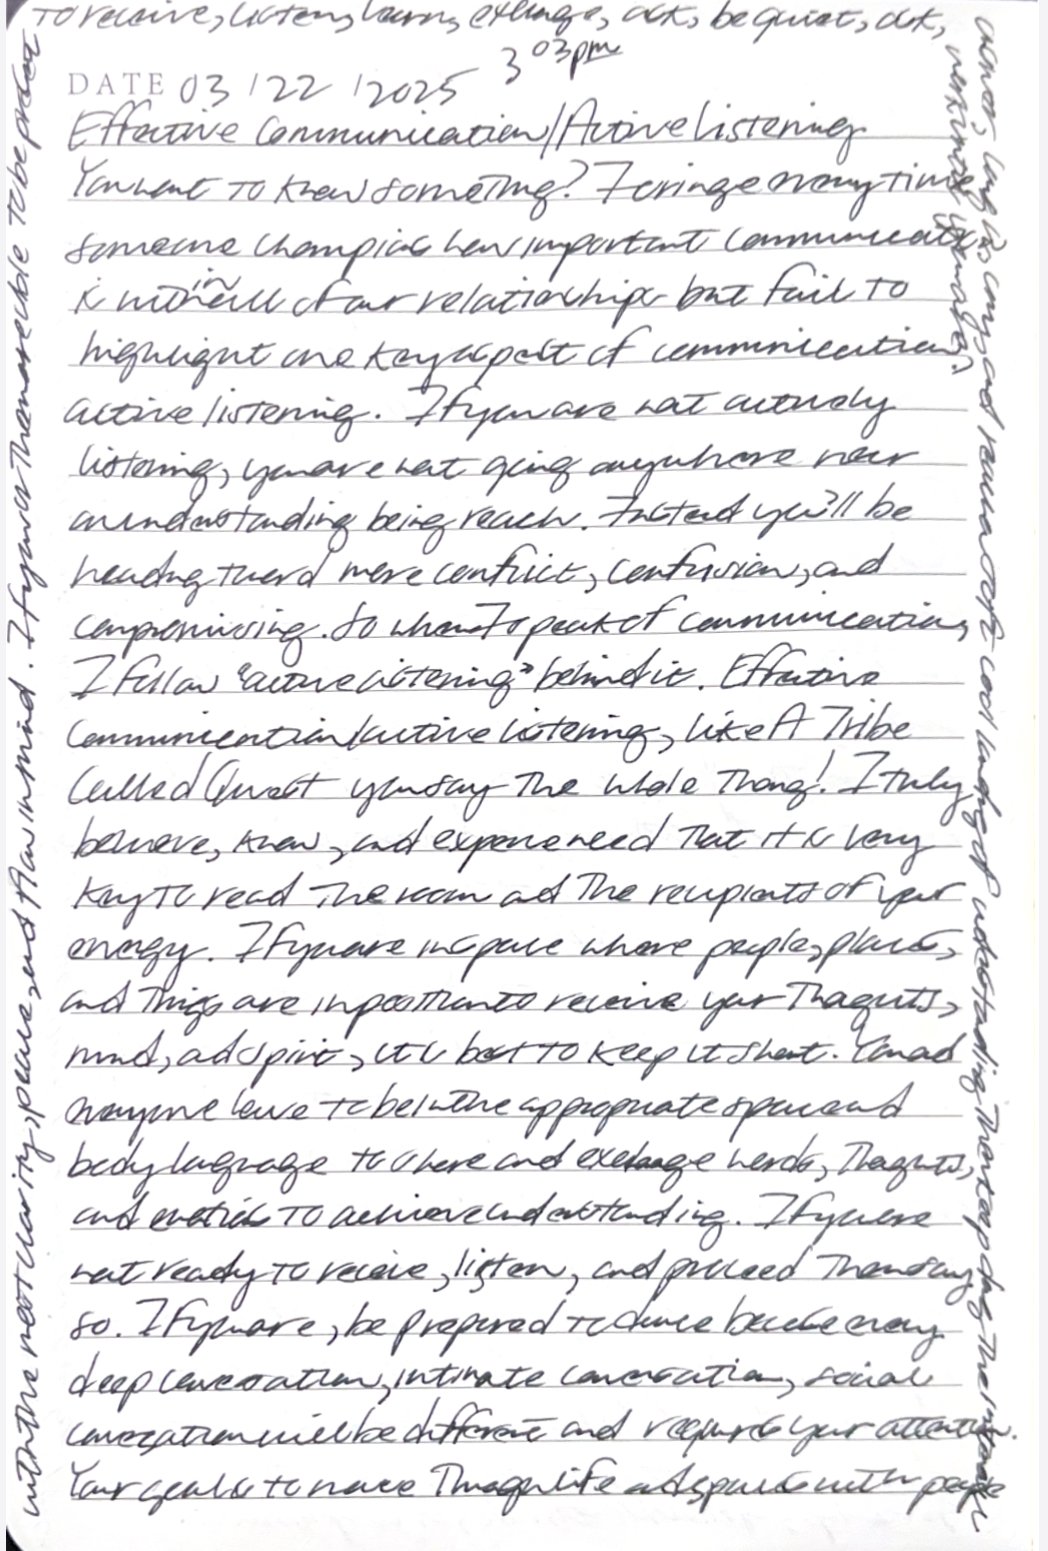 DATE 03/22/2025 3 03pm
Effective Communication/Active listening
You want to know something? I cringe every time
someone champions how important communication
is within all of our relationships but fail to
highlight one key aspect of communication,
active listening. If you are not actively
listening, you are not going anywhere near
an understanding being reach. Instead you'll be
heading toward more conflict, confusion, and
compromising. So when I speak of communication,
I follow "active listening" behind it. Effective
Communication/active listening, like A Tribe
Called Quest you say the whole thang! I truly
believe, know, and experienced that it is very
key to read the room and the recipients of your
energy. If you are in space where people, places,
and things are in position to receive your thoughts,
mind, and spirit, it is best to keep it short. You and
everyone have to be in the appropriate space and
body language to share and exchange words, thoughts,
and emotions to achieve understanding. If you are
not ready to receive, listen, and proceed then say
so. If you are, be prepared to dance because every
deep conversation, intimate conversation, social
conversation will be different and requires your attention.
Your goal is to move through life and spaces with people
with the most clarity, peace, and flow in mind. If you or them are able to be present
to receive, listen, learn, exchange, ask, be quiet, ask,